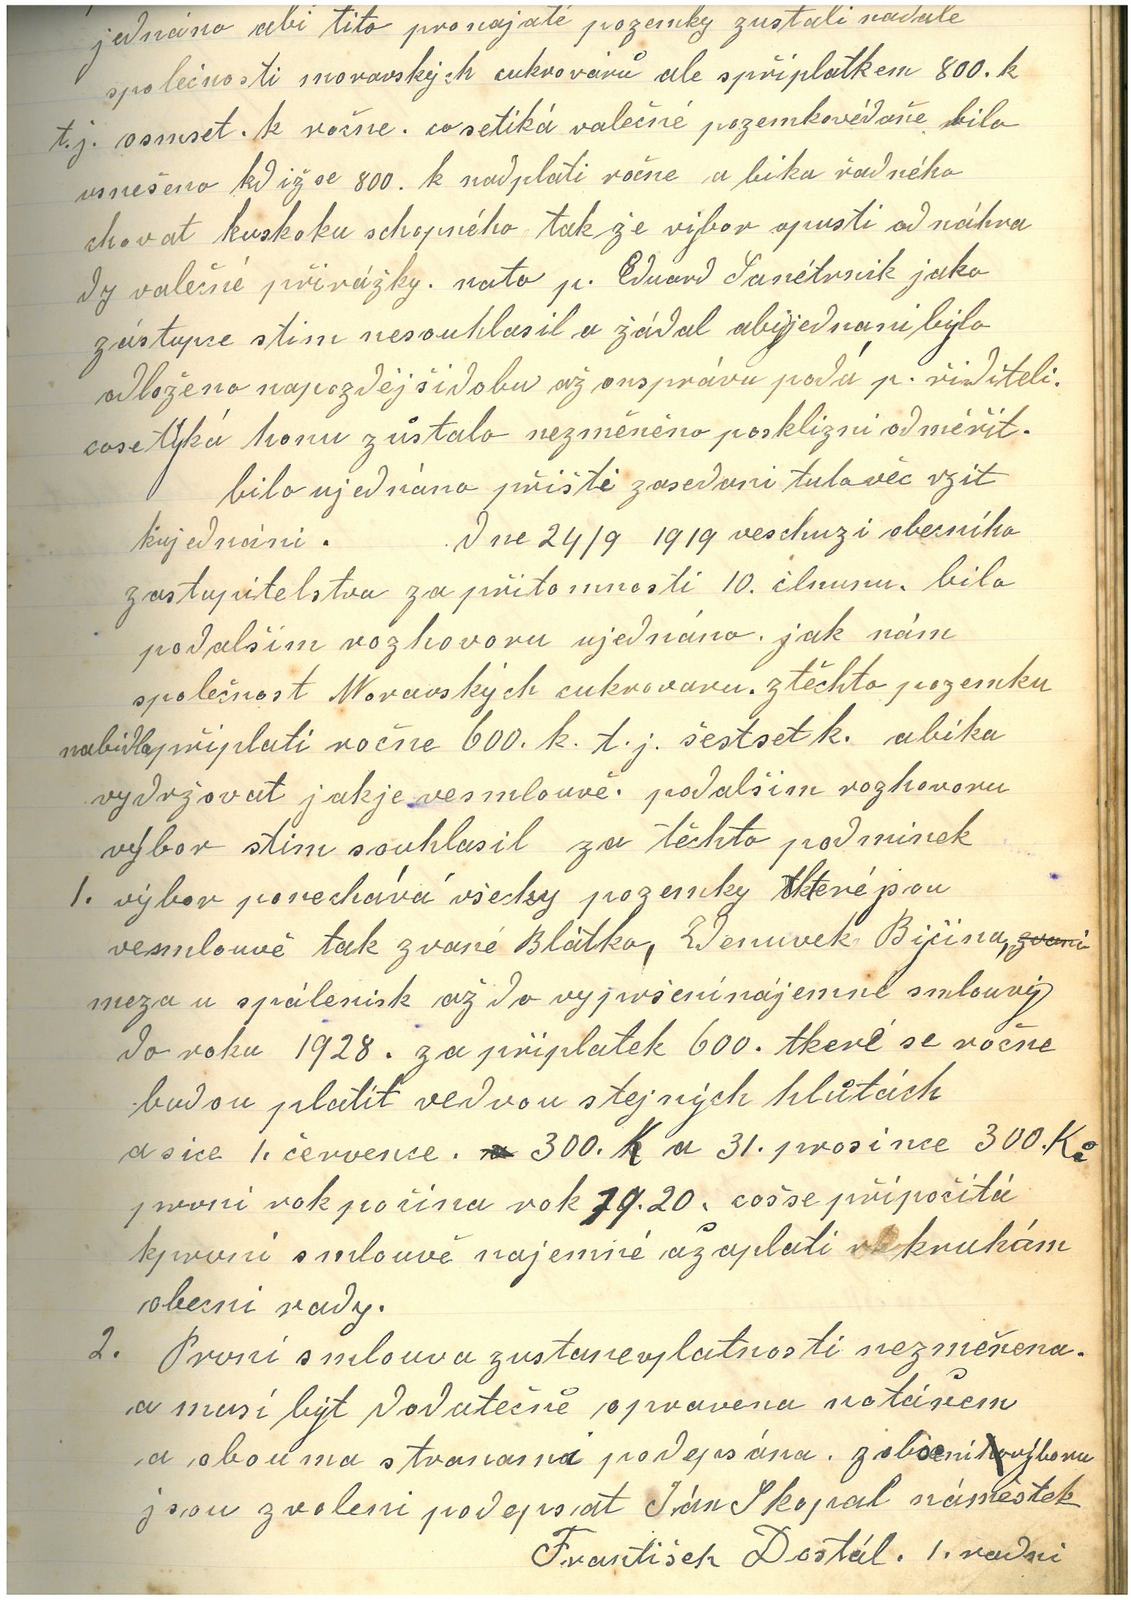 jednáno abi tito pronajaté pozemky zustali nadále
společnosti moravských cukrovarů ale spříplatkem 800. k
t.j. osmset. kročne. cosetiká valečné pozemkovédaně bilo
usnešeno kdižse 800. k nadplati ročne a bika řadného
chovat kuskoku schopného tak že víjbor opusti od náhra
dy valečné přirážky. nato p. Eduard Šanétrnik jako
zástupce stim nesouhlasil a žádal abyjednani býlo
odloženo napozdějšidobu až onsprávu podá p. řiditeli.
cosetýká honu zůstalo nezměněno posklizni odměřit.
bilo ujednáno přišté zasedani tutověc vzit
kujednáni. Dne 24/9 1919 veschuzi obecniho
zastupitelstva za přitomnosti 10. členunu. bilo
podalšim rozhovoru ujednáno. jak nám
společnost Moravských cukrovaru. ztěchto pozemku
nabidlapřiplati ročne 600. k. t. j. šestset k. abika
vydržovat jakje vesmlouvě. podalšim rozhovoru
výbor stim souhlasil za těchto podminek
1. výbor ponechává všecky pozemky kteréjsou
vesmlouvě tak zvané Blátka, Zdenuvek Bijčina, zvani
meza u spálenisk až do vypršenínájemné smlouvý
do roku 1928. za připlatek 600. tkeré se ročne
budou platit vedvou stejných hlůtách
a sice 1. července. a 300. K a 31. prosince 300. Kč
prvni rok počina rok 19.20. cošse připočitá
kprvní smlouvě najemné ažaplati rukruhám
obecni rady.
2. Prvni smlouva zustanevplatnosti nezměněna.
a musí být dodatečně opravena notářem
a obouma stranami podepsána. zobecnihovýboru
jsou zvoleni podepsat Ján Skopal náměstek
František Dostál. 1. radni